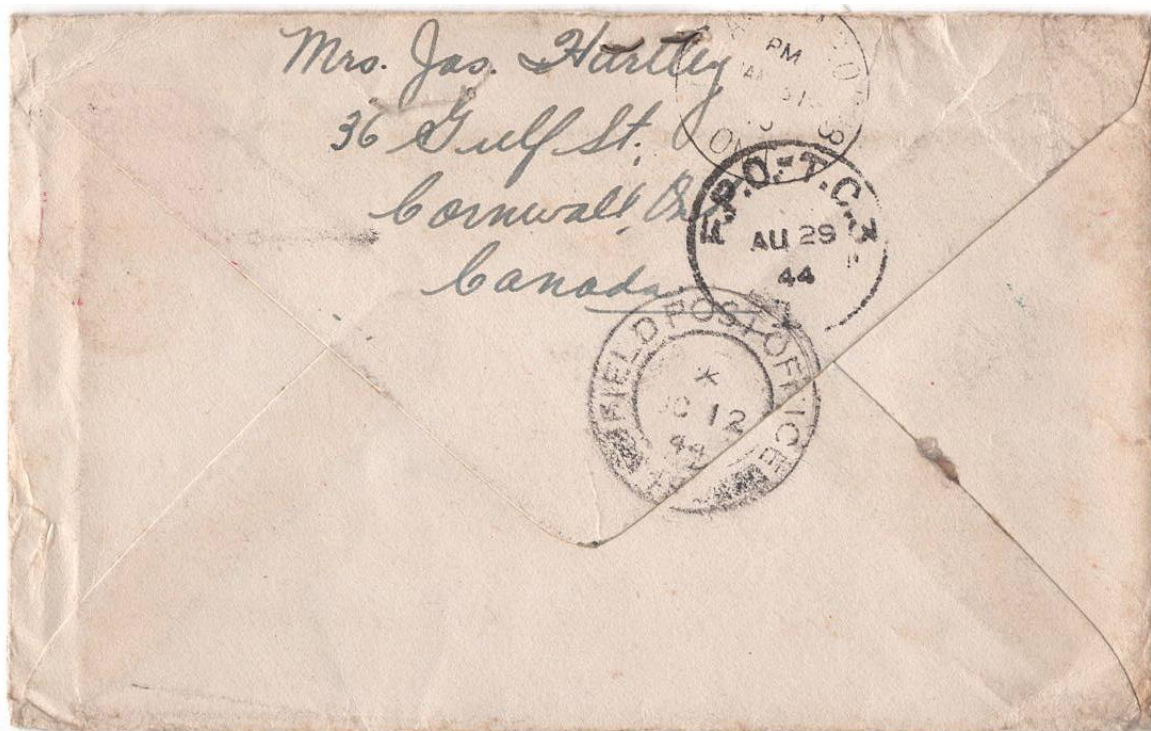 Mrs. Jas. Hartley
36 Gulf St.
Cornwall, Ont.
Canada.
PM
F.P.O.-T.C.-
AU 29
44
FIELD POST OFFICE
12
44